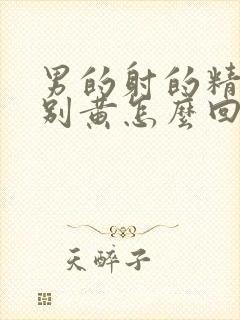 男的射的精
别黄怎麼回
天醉子